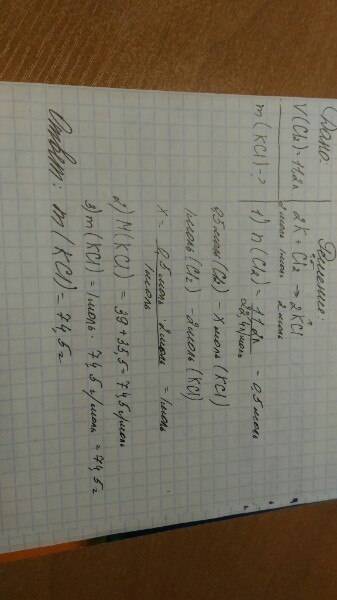 Дано:
V(Cl2)=11,2л
m(KCl)-?
Решение:
2K + Cl2 → 2KCl
2 моль 1 моль 2 моль
1) n(Cl2) = 11,2л / 22,4л/моль = 0,5 моль
0,5 моль (Cl2) - x моль (KCl)
1 моль (Cl2) - 2 моль (KCl)
x = 0,5 моль · 2 моль / 1 моль = 1 моль
2) M(KCl) = 39+35,5=74,5 г/моль
3) m(KCl) = 1 моль · 74,5 г/моль = 74,5 г
Ответ: m(KCl)=74,5 г